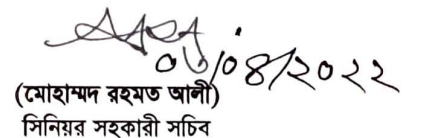 ০৬/০৪/২০২২
(মোহাম্মদ রহমত আলী)
সিনিয়র সহকারী সচিব